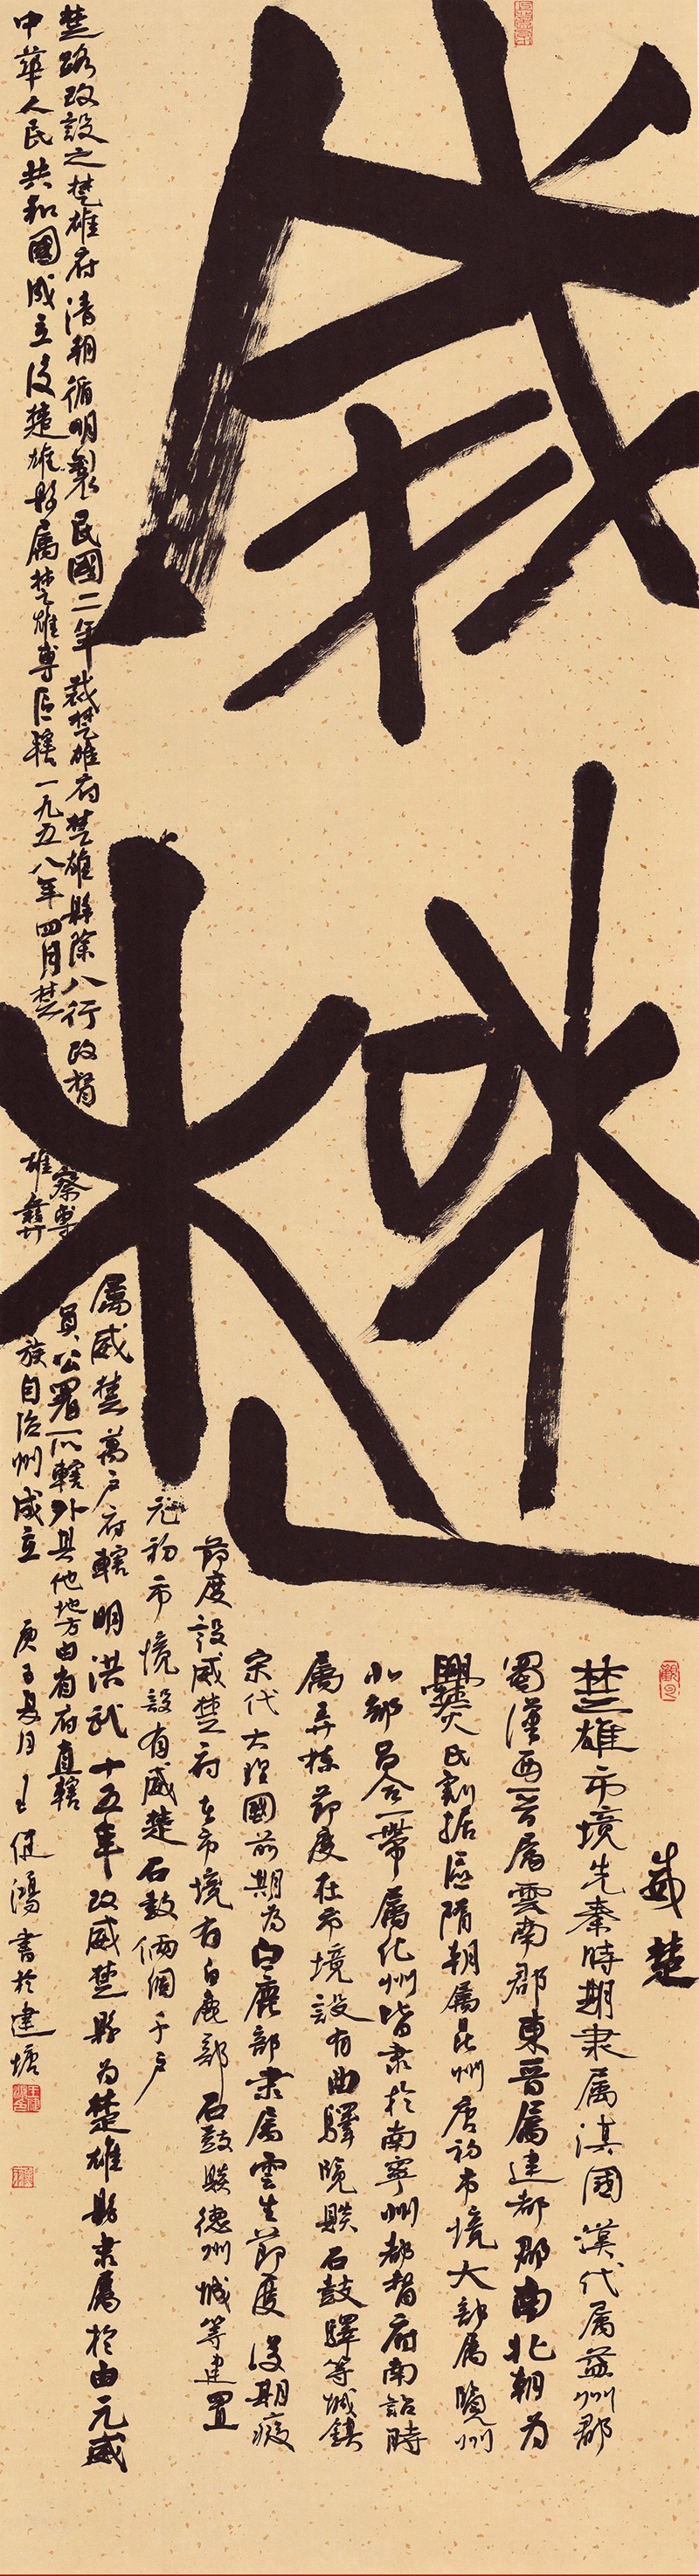 威楚
威楚
楚雄市境先秦時期隶属滇國漢代属益州郡
蜀漢西晋属雲南郡東晋属建都郡南北朝为
爨氏割据區隋朝属昆州唐初市境大部属览州
北部吕合一帶属化州皆隶於南寧州都督府南詔時
属弄棟節度在市境設有曲驛览賧石鼓驛等城鎮
宋代大理國前期为白鹿部隶属雲生節度後期癈
節度設威楚府在市境有白鹿部石鼓賧德州城等建置
元初市境設有威楚石鼓俩個千户
属威楚萬户府轄明洪武十五年改威楚縣为楚雄縣隶属於由元威
楚路改設之楚雄府清朝循明製民國二年裁楚雄府楚雄縣除八行政督察專員公署所轄外其他地方由省府直轄
中華人民共和國成立後楚雄縣属楚雄專區轄一九五八年四月楚雄彝族自治州成立 庚子夏月 王健鴻書於建塘